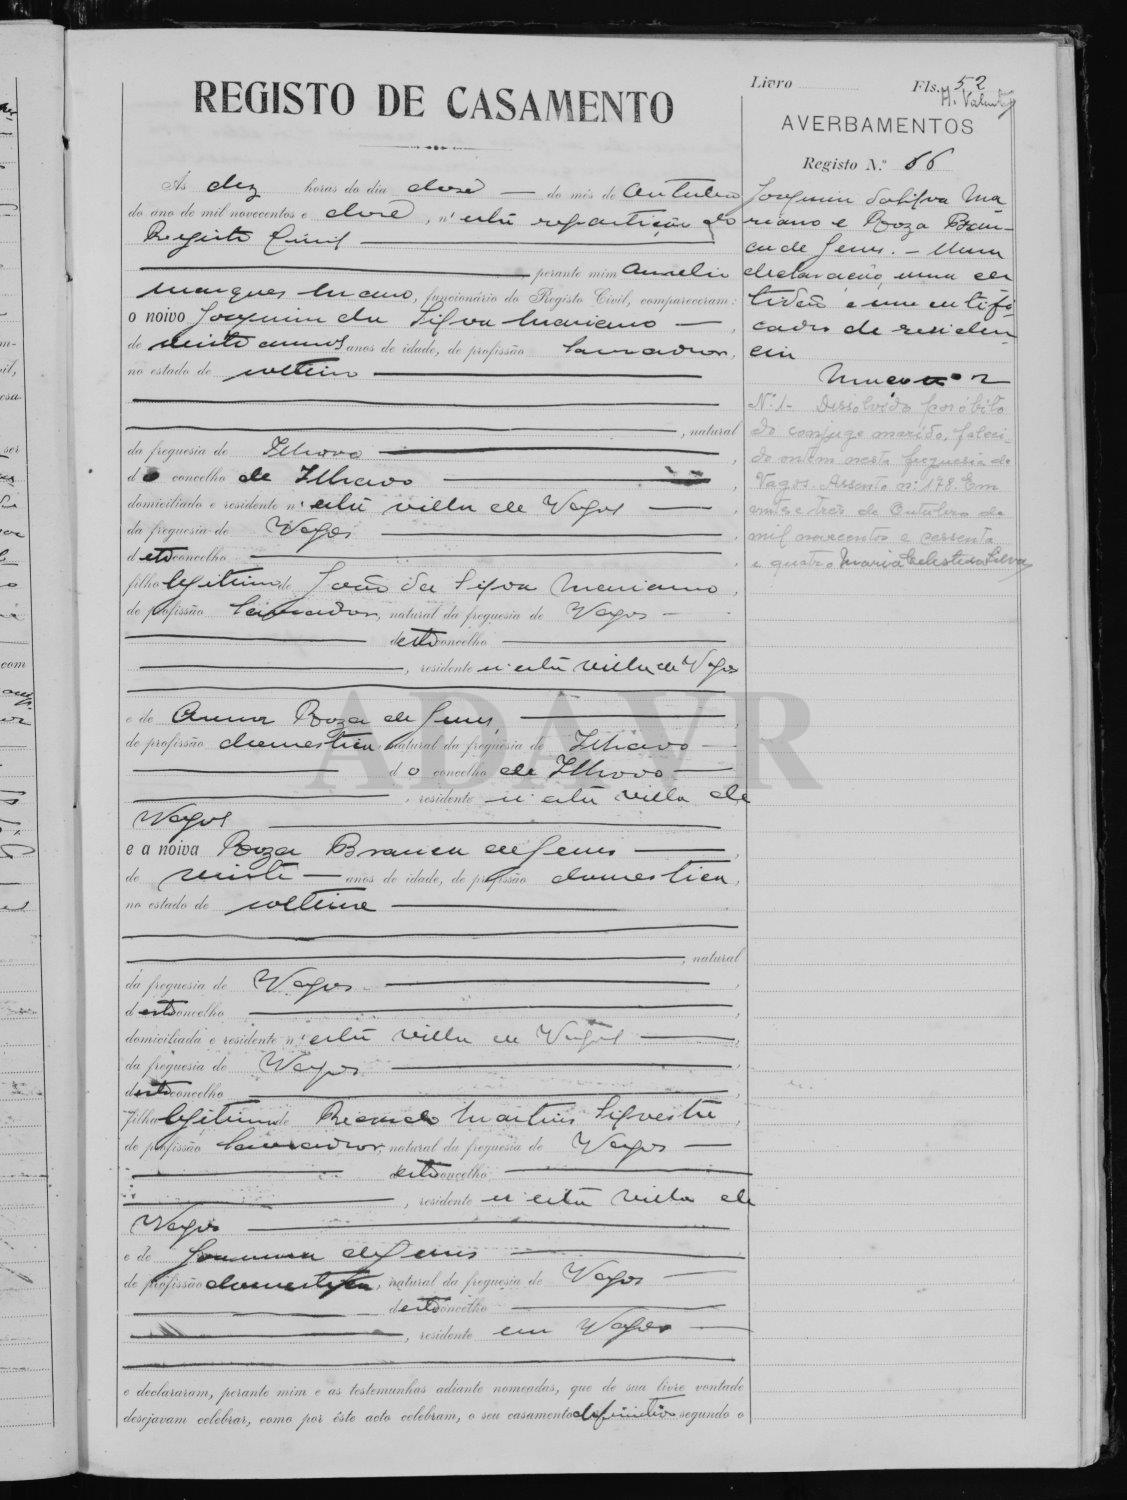 REGISTO DE CASAMENTO
Às dez horas do dia doze do mês de outubro
do ano de mil novecentos e doze, n'esta repartição do
Registo Civil
perante mim Aurelio
Marques Mano, funcionário do Registo Civil, compareceram:
o noivo Joaquim da Silva Mariano
de vinte annos anos de idade, de profissão lavrador,
no estado de solteiro
, natural
da freguesia de Ilhavo
d concelho de Ilhavo
domiciliado e residente n'esta villa de Vagos
da freguesia de Vagos
d este concelho
filho legitimo de João da Silva Mariano,
de profissão lavrador, natural da freguesia de Vagos
d este concelho
, residente n'esta villa de Vagos
e de Anna Roza de Jesus
de profissão domestica, natural da freguesia de Ilhavo
d o concelho de Ilhavo
, residente n'esta villa de
Vagos
e a noiva Roza Branca de Jesus
de vinte anos de idade, de profissão domestica,
no estado de solteira
, natural
da freguesia de Vagos
d este concelho
domiciliada e residente n'esta villa de Vagos
da freguesia de Vagos
d este concelho
filha legitima de Ricardo Martins Silvestre,
de profissão lavrador, natural da freguesia de Vagos
d este concelho
, residente n'esta villa de
Vagos
e de Joanna de Jesus
de profissão domestica, natural da freguesia de Vagos
d este concelho
, residente em Vagos
e declararam, perante mim e as testemunhas adiante nomeadas, que de sua livre vontade
desejavam celebrar, como por êste acto celebram, o seu casamento definitivo segundo o
Livro Fls. 52
AVERBAMENTOS
Registo N.º 66
Joaquim da Silva Ma
riano e Roza Bran-
ca de Jesus. - Uma
declaração, uma cer
tidão e um certifi
cado de residen
cia
N.º 1 - Dissolvido por óbito
do conjuge marido, faleci-
do ontem nesta freguesia de
Vagos. Assento n.º 178. Em
vinte e três de Outubro de
mil novecentos e sessenta
e quatro Maria Celeste da Silva
ADAVR